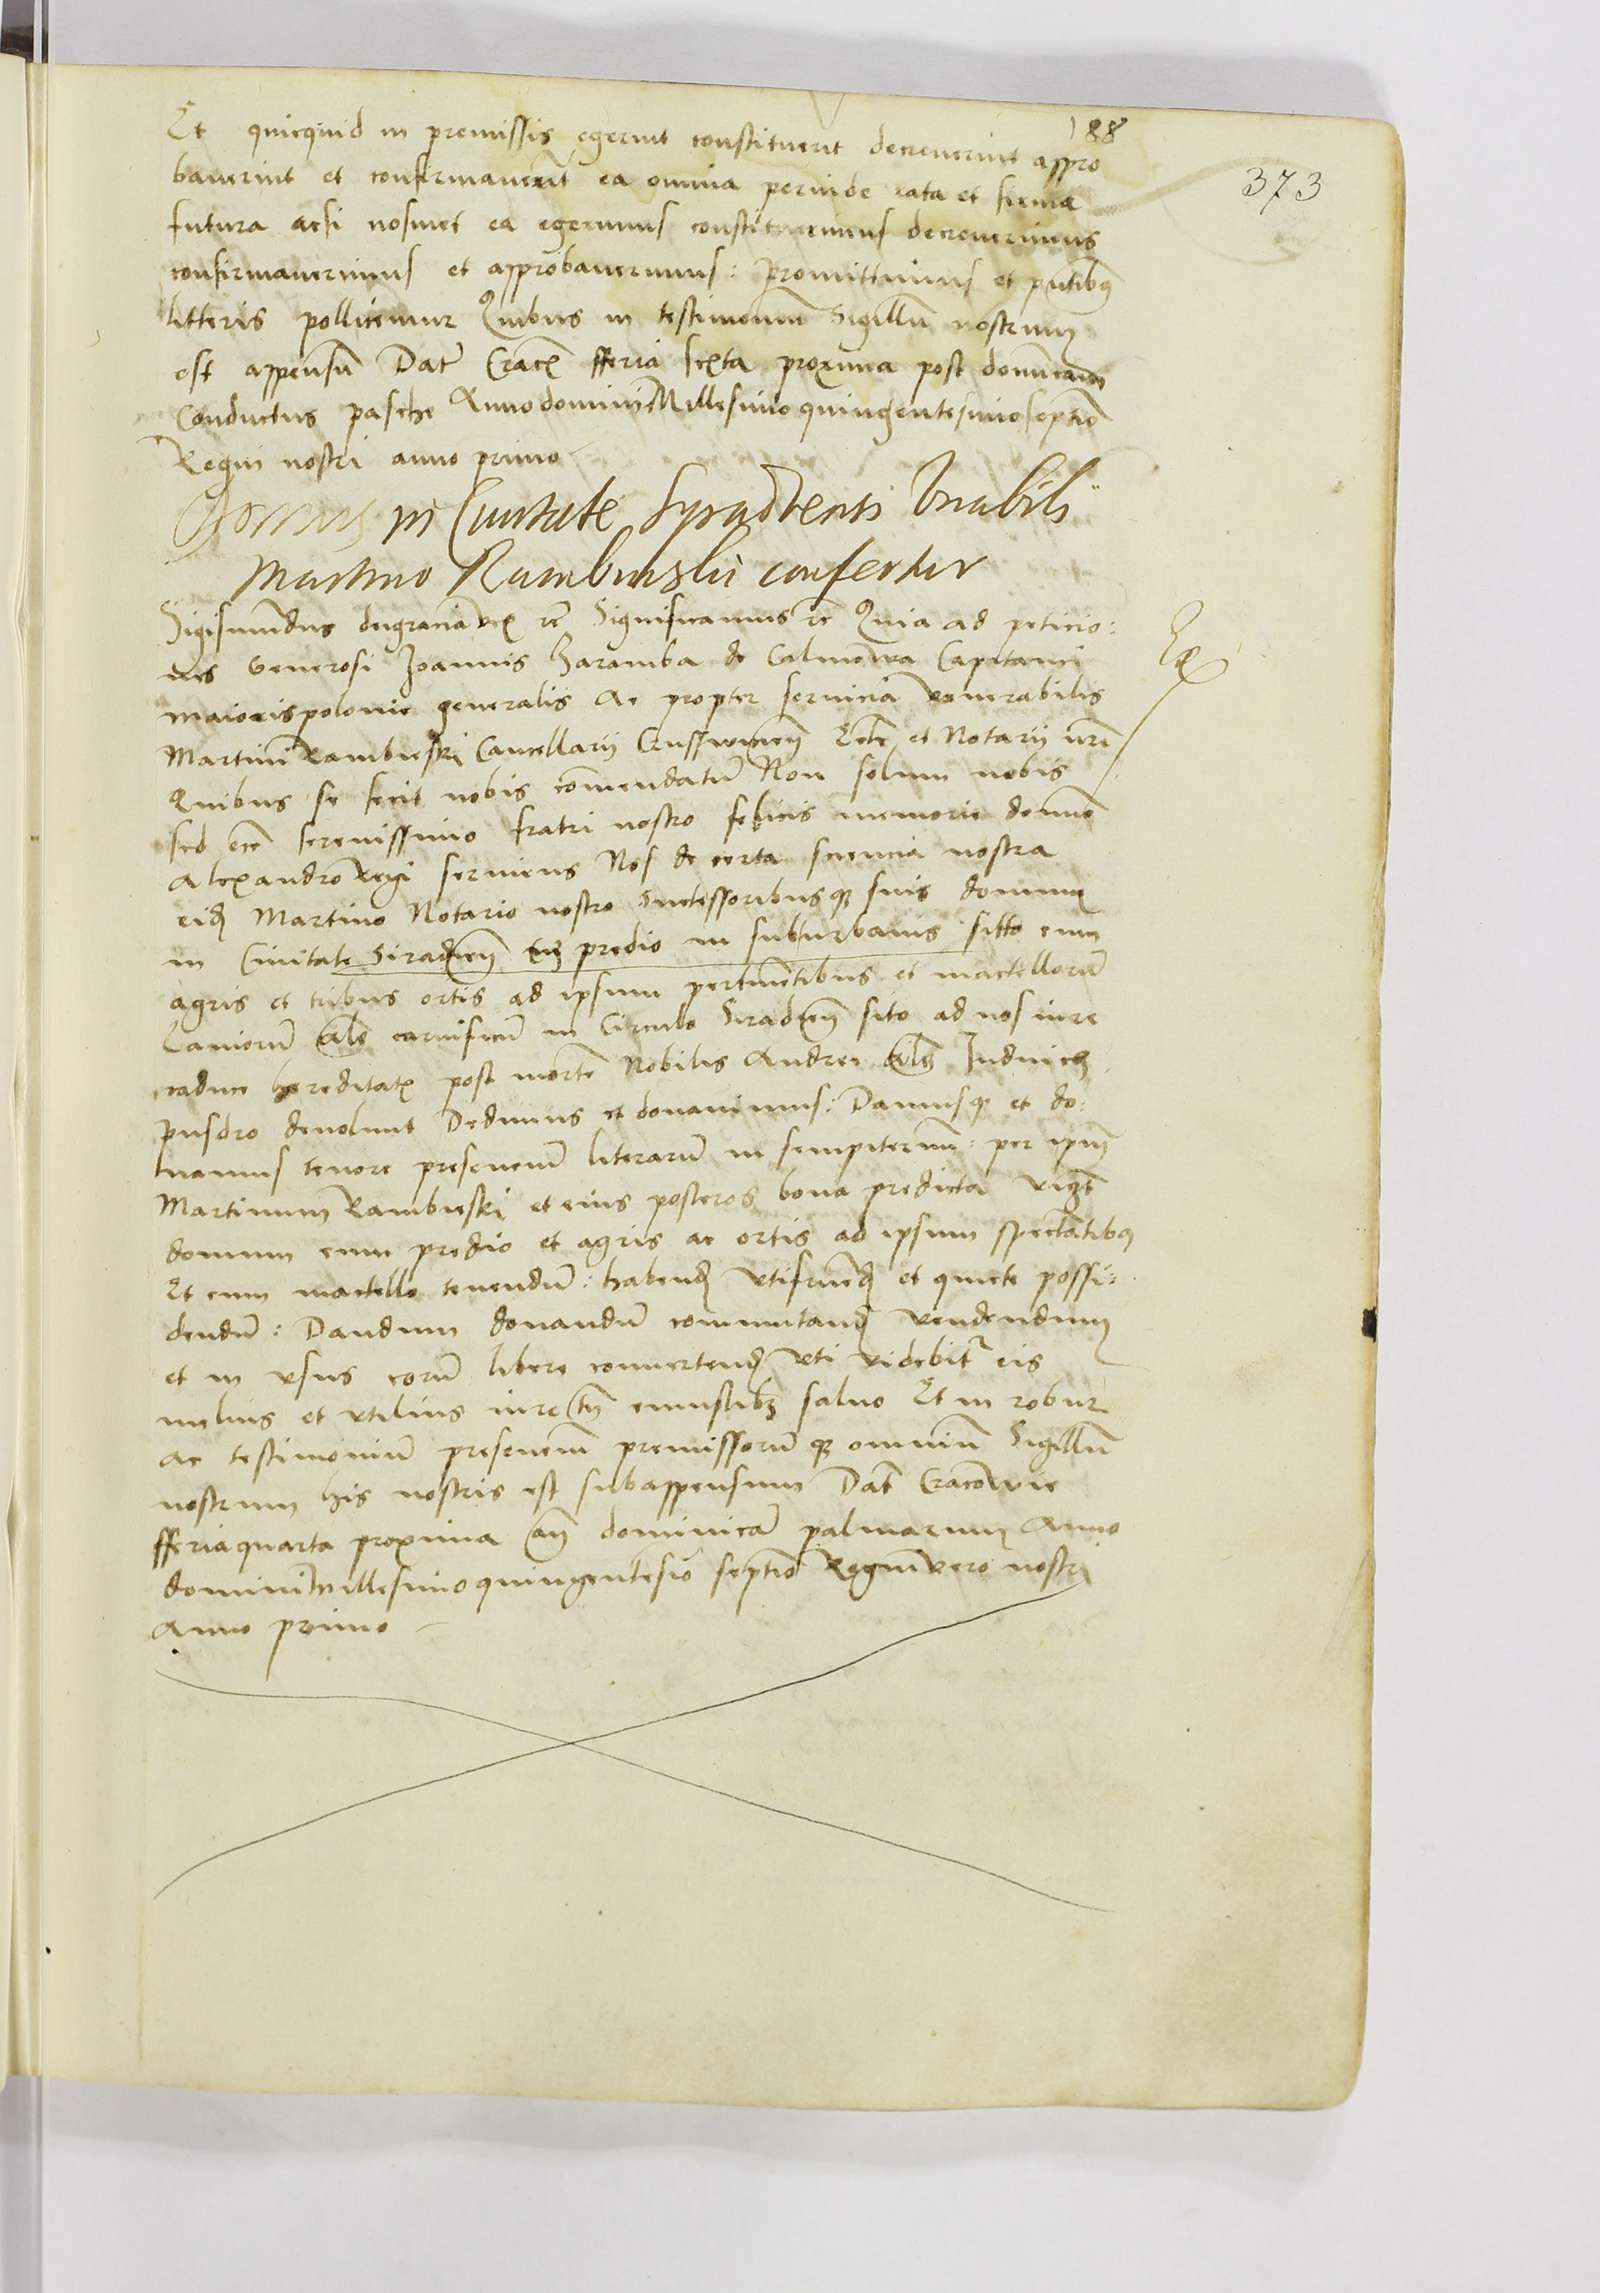 188
373
Et quicquid in premissis egerint constituerit decreverint appro
bauerint et confirmauerint ea omnia perinde rata et firma
futura acsi nosmet ea egerimus constituerimus decreuerimus
confirmauerimus et approbauerimus: promittimus et pntibus
litteris pollicemur Quibus in testimonium Sigillum nostrum
est appensum Dat Crac fferia sexta proxima post dominicam
Conductus pasche Anno domini Millesimo quingentesimo septimo
Regni nostri anno primo
Domus in Ciuitate Syradiensi Vnabili
Martino Rambiewski confertur
Ex
Sigismundus dei gracia rex etc Significamus etc Quia ad peticio:
nes Generosi Joannis Zaramba de Calinowa Capitanei
maioris polonie generalis Ac propter seruicia venerabilis
Martini Rambieski Cancellarii Crusswicien Eccle et Notarii nri
Quibus se fecit nobis comendatum Non solum nobis
sed eciam serenissimo fratri nostro felicis memorie domino
Alexandro Regi seruiens Nos de certa sciencia nostra
eidem Martino Notario nostro Successoribusque suis domum
in Ciuitate Siradien cum predio in subturbanis sitto cum
agris et tribus ortis ad ipsum pertinentibus et mactellorum
laniorum als carnificum in Circulo Siradien sito ad nos iure
caduce hereditatis post mortem Nobilis Andree als Indrich
pusdro deuolunt Dedimus et donauimus: Damusque et do:
namus tenore presencium literarum in sempiternum: per ipsum
Martinum Rambieski et eius posteros bona predicta vigt
domum cum predio et agris ac ortis ad ipsum spectantibus
Et cum mactello tenendum: habendum vtifruendum et quiete possi:
dendum: Dandum donandum commutandum vendendum
et in vsus eorum libere conuertendum vti videbitur eis
melius et vtilius iure tn cuiuslibet saluo Et in robur
ac testimonium presencium premissorumque omnium Sigillum
nostrum his nostris est subappensum Dat Cracowie
fferia quarta proxima an dominicam palmarum Anno
domini millesimo quingentesimo septimo Regni vero nostri
Anno primo